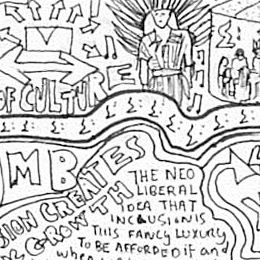 OF CULTURE
MB
SION CREATES
GROWTH
THE NEO
LIBERAL
IDEA THAT
INCLUSION IS
THIS FANCY LUXURY
TO BE AFFORDED if and
when